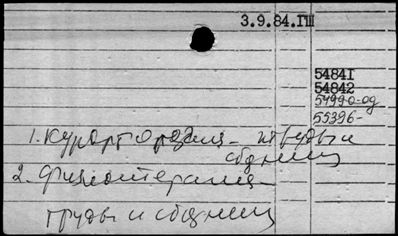 3.9.84.ГШ
54841
54842
54990-од
55396-
1. Курортология - труды и
сборники
2. Физиотерапия -
труды и сборники